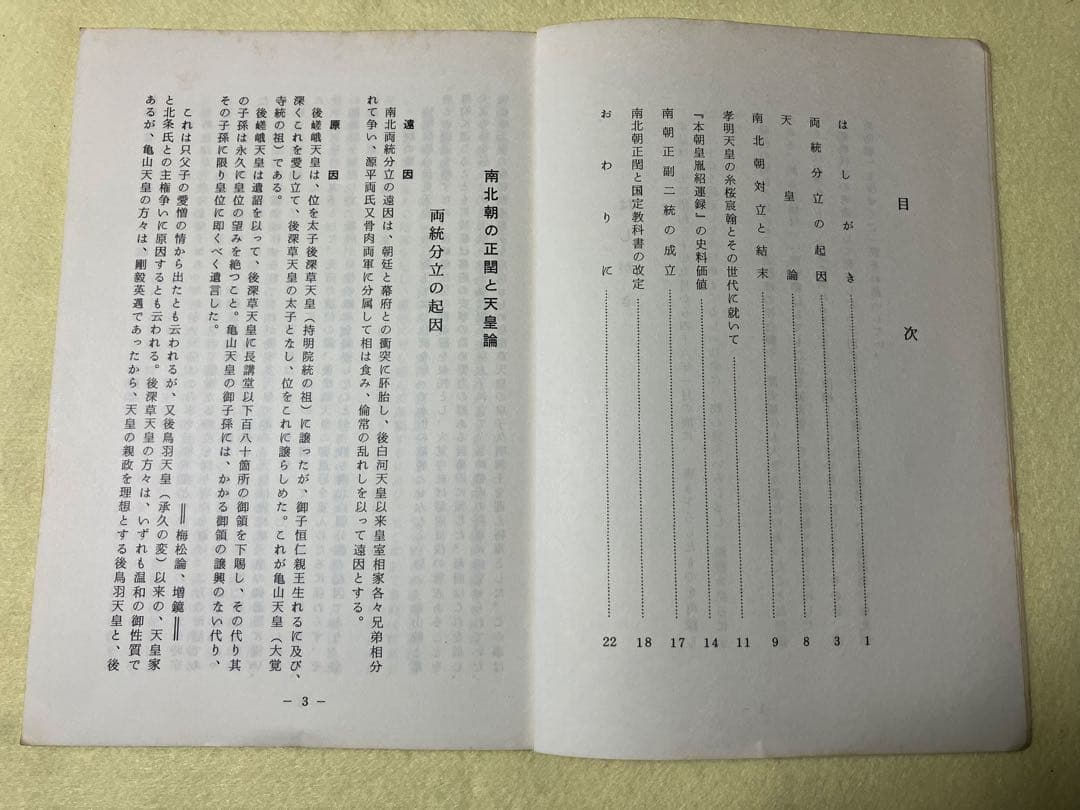 目次
はしがき……1
両統分立の起因……3
天皇論……8
南北朝対立と結末……9
孝明天皇の糸桜宸翰とその世代に就いて……11
『本朝皇胤紹運録』の史料価値……14
南朝正副二統の成立……17
南北朝正閏と国定教科書の改定……18
おわりに……22
南北朝の正閏と天皇論
両統分立の起因
遠因
南北両統分立の遠因は、朝廷と幕府との衝突に胚胎し、後白河天皇以来皇室相家各々兄弟相分
れて争い、源平両氏又骨肉両軍に分属して相は食み、倫常の乱れしを以って遠因とする。
原因
後嵯峨天皇は、位を太子後深草天皇(持明院統の祖)に譲ったが、御子恒仁親王生れるに及び、
深くこれを愛し立て、後深草天皇の太子となし、位をこれに譲らしめた。これが亀山天皇(大覚
寺統の祖)である。
後嵯峨天皇は遺詔を以って、後深草天皇に長講堂以下百八十箇所の御領を下賜し、その代り其
の子孫は永久に皇位の望みを絶つこと。亀山天皇の御子孫には、かかる御領の譲興のない代り、
その子孫に限り皇位に即くべく遺言した。
═梅松論、増鏡═
これは只父子の愛憎の情から出たとも云われるが、又後鳥羽天皇(承久の変)以来の、天皇家
と北条氏との主権争いに原因するとも云われる。後深草天皇の方々は、いずれも温和の御性質で
あるが、亀山天皇の方々は、剛毅英邁であったから、天皇の親政を理想とする後鳥羽天皇と、後
— 3 —